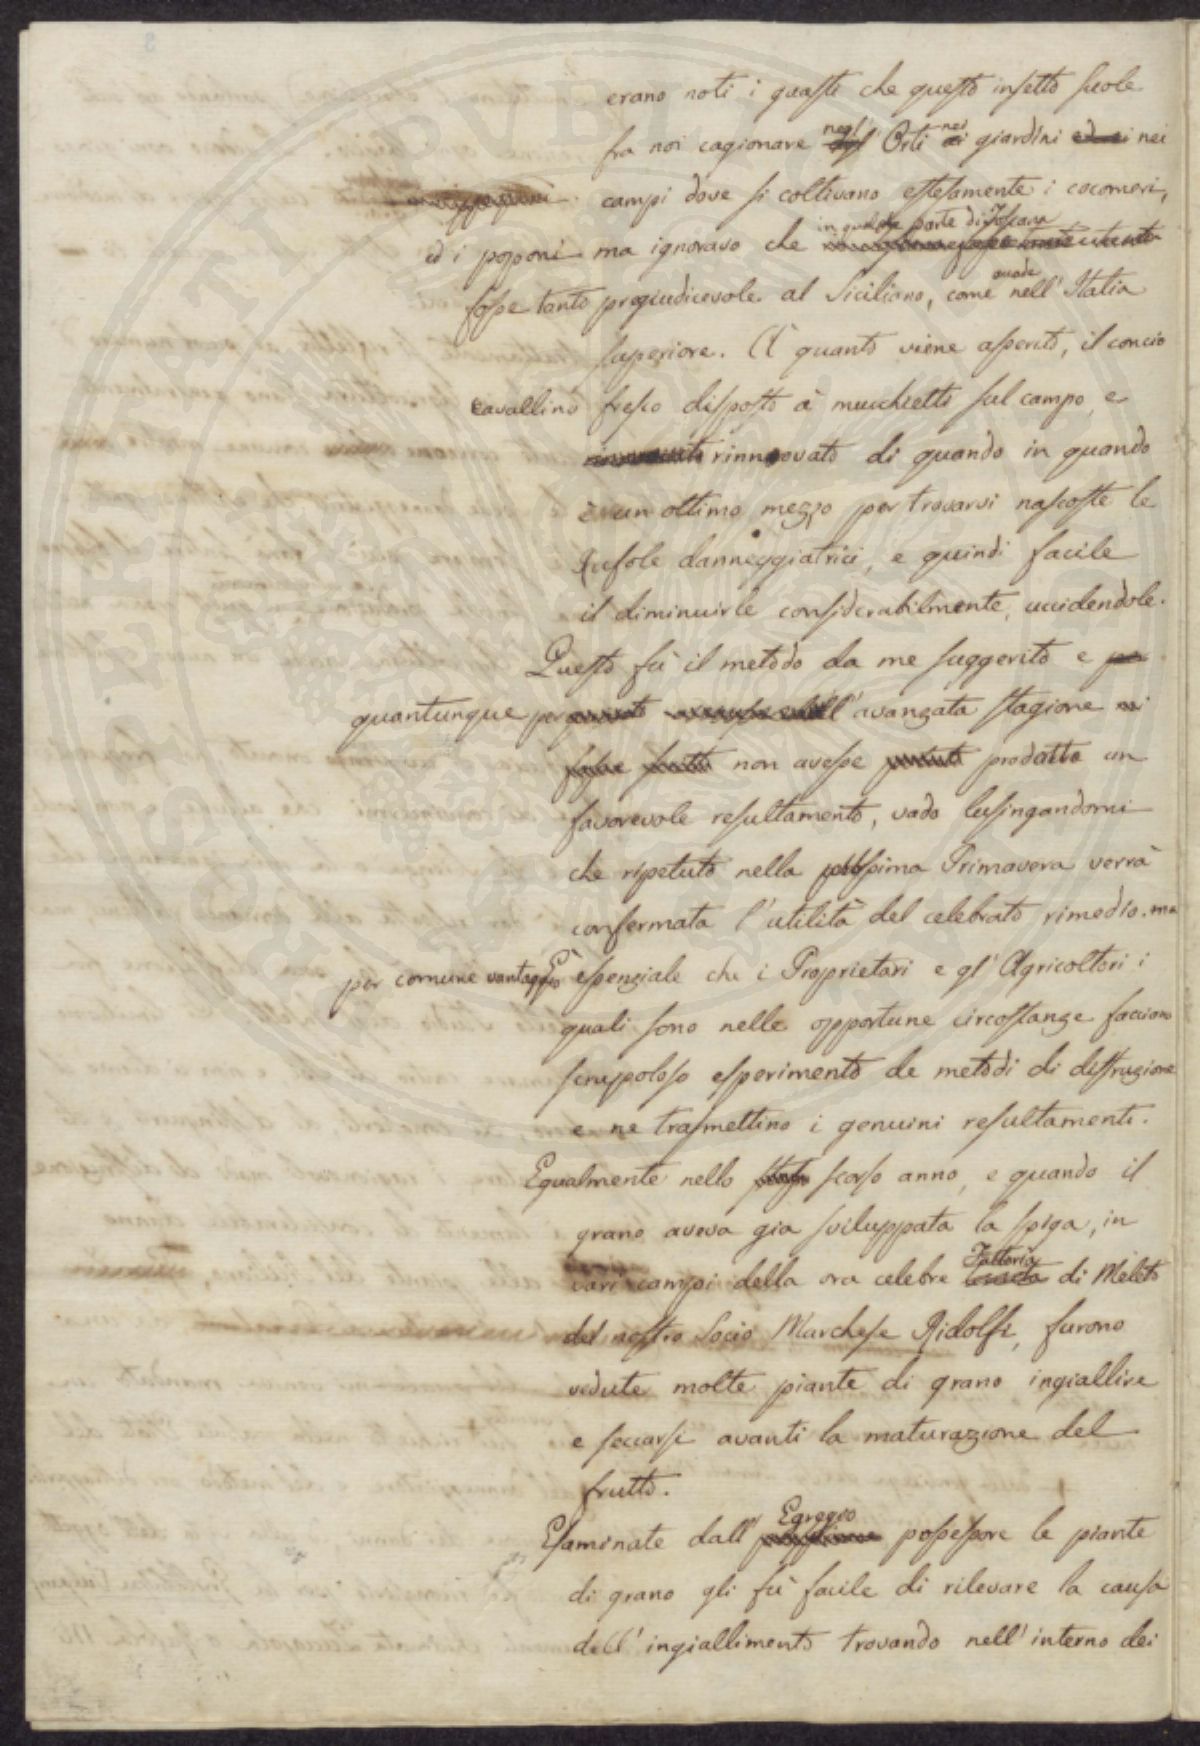 erano noti i guasti che questo insetto suole
fra noi cagionare negl' Orti nei giardini ed ei nei
campi dove si coltivano estesamente i cocomeri,
ed i poponi ma ignoravo che in qualche parte di Toscana
fosse tanto pregiudicevole al Siciliano, come quado nell' Italia
superiore. A quanto viene asserito, il concio
cavallino fresco disposto à mucchietti sul campo, e
rinnovato di quando in quando
è un ottimo mezzo per trovarvi nascoste le
Rufole danneggiatrici, e quindi facile
il diminuirle considerabilmente, uccidendole.
Questo fù il metodo da me suggerito e pe
quantunque per l' avanzata stagione mi
fosse non avesse prodotto un
favorevole resultamento, vado lusingandomi
che ripetuto nella prossima Primavera verrà
confermata l' utilità del celebrato rimedio. ma
per comune vantaggio È essenziale che i Proprietari e gl' Agricoltori i
quali sono nelle opportune circostanze facciano
scrupoloso esperimento de metodi di distruzione
e ne trasmettino i genuini resultamenti.
Egualmente nello scorso anno, e quando il
grano aveva gia sviluppata la spiga, in
vari campi della ora celebre Fattoria di Meleto
del nostro Socio Marchese Ridolfi, furono
vedute molte piante di grano ingiallire
e seccarsi avanti la maturazione del
frutto.
Esaminate dall' Egregio possessore le piante
di grano gli fù facile di rilevare la causa
dell' ingiallimento trovando nell' interno dei